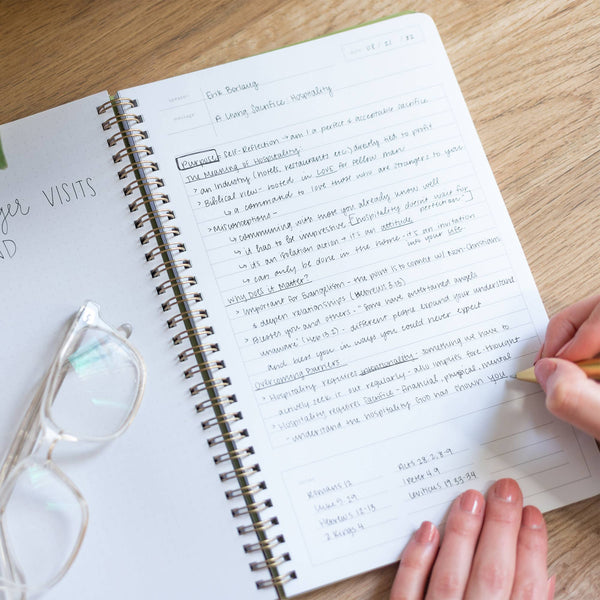 ger VISITS
ND
DATE 08 / 21 / 22
SPEAKER Erik Borlaug
MESSAGE A Living Sacrifice: Hospitality
Purpose: Self-Reflection → am I a perfect & acceptable sacrifice
The Meaning of Hospitality
> an industry (hotels, restaurants etc.) already used to profit
> Biblical view - rooted in LOVE for fellow man
↳ a command to love those who are strangers to you
> Misconceptions -
↳ communing with those you already know well
↳ it has to be impressive [hospitality doesn't wait for perfection]
↳ it's an isolation action → it's an attitude
↳ can only be done in the home - it's an invitation into your life
Why Does it Matter?
> Important for Evangelism - the point is to connect w/ Non-Christians
& deepen relationships (Hebrews
> Blesses you and others - "some have entertained angels
unaware" (Heb 13.2) - different people expand your understanding
and bless you in ways you could never expect
Overcoming Barriers
> Hospitality requires intentionality - something we have to
actively seek it out regularly - also implies fore thought
> Hospitality requires Sacrifice - financial, physical, mental
- understand the hospitality God has shown you
Romans 12
Luke 5.29
Hebrews 12-13
2 Kings 4
Acts 28.2, 8-9
1 Peter 4.9
Leviticus 19.33-34